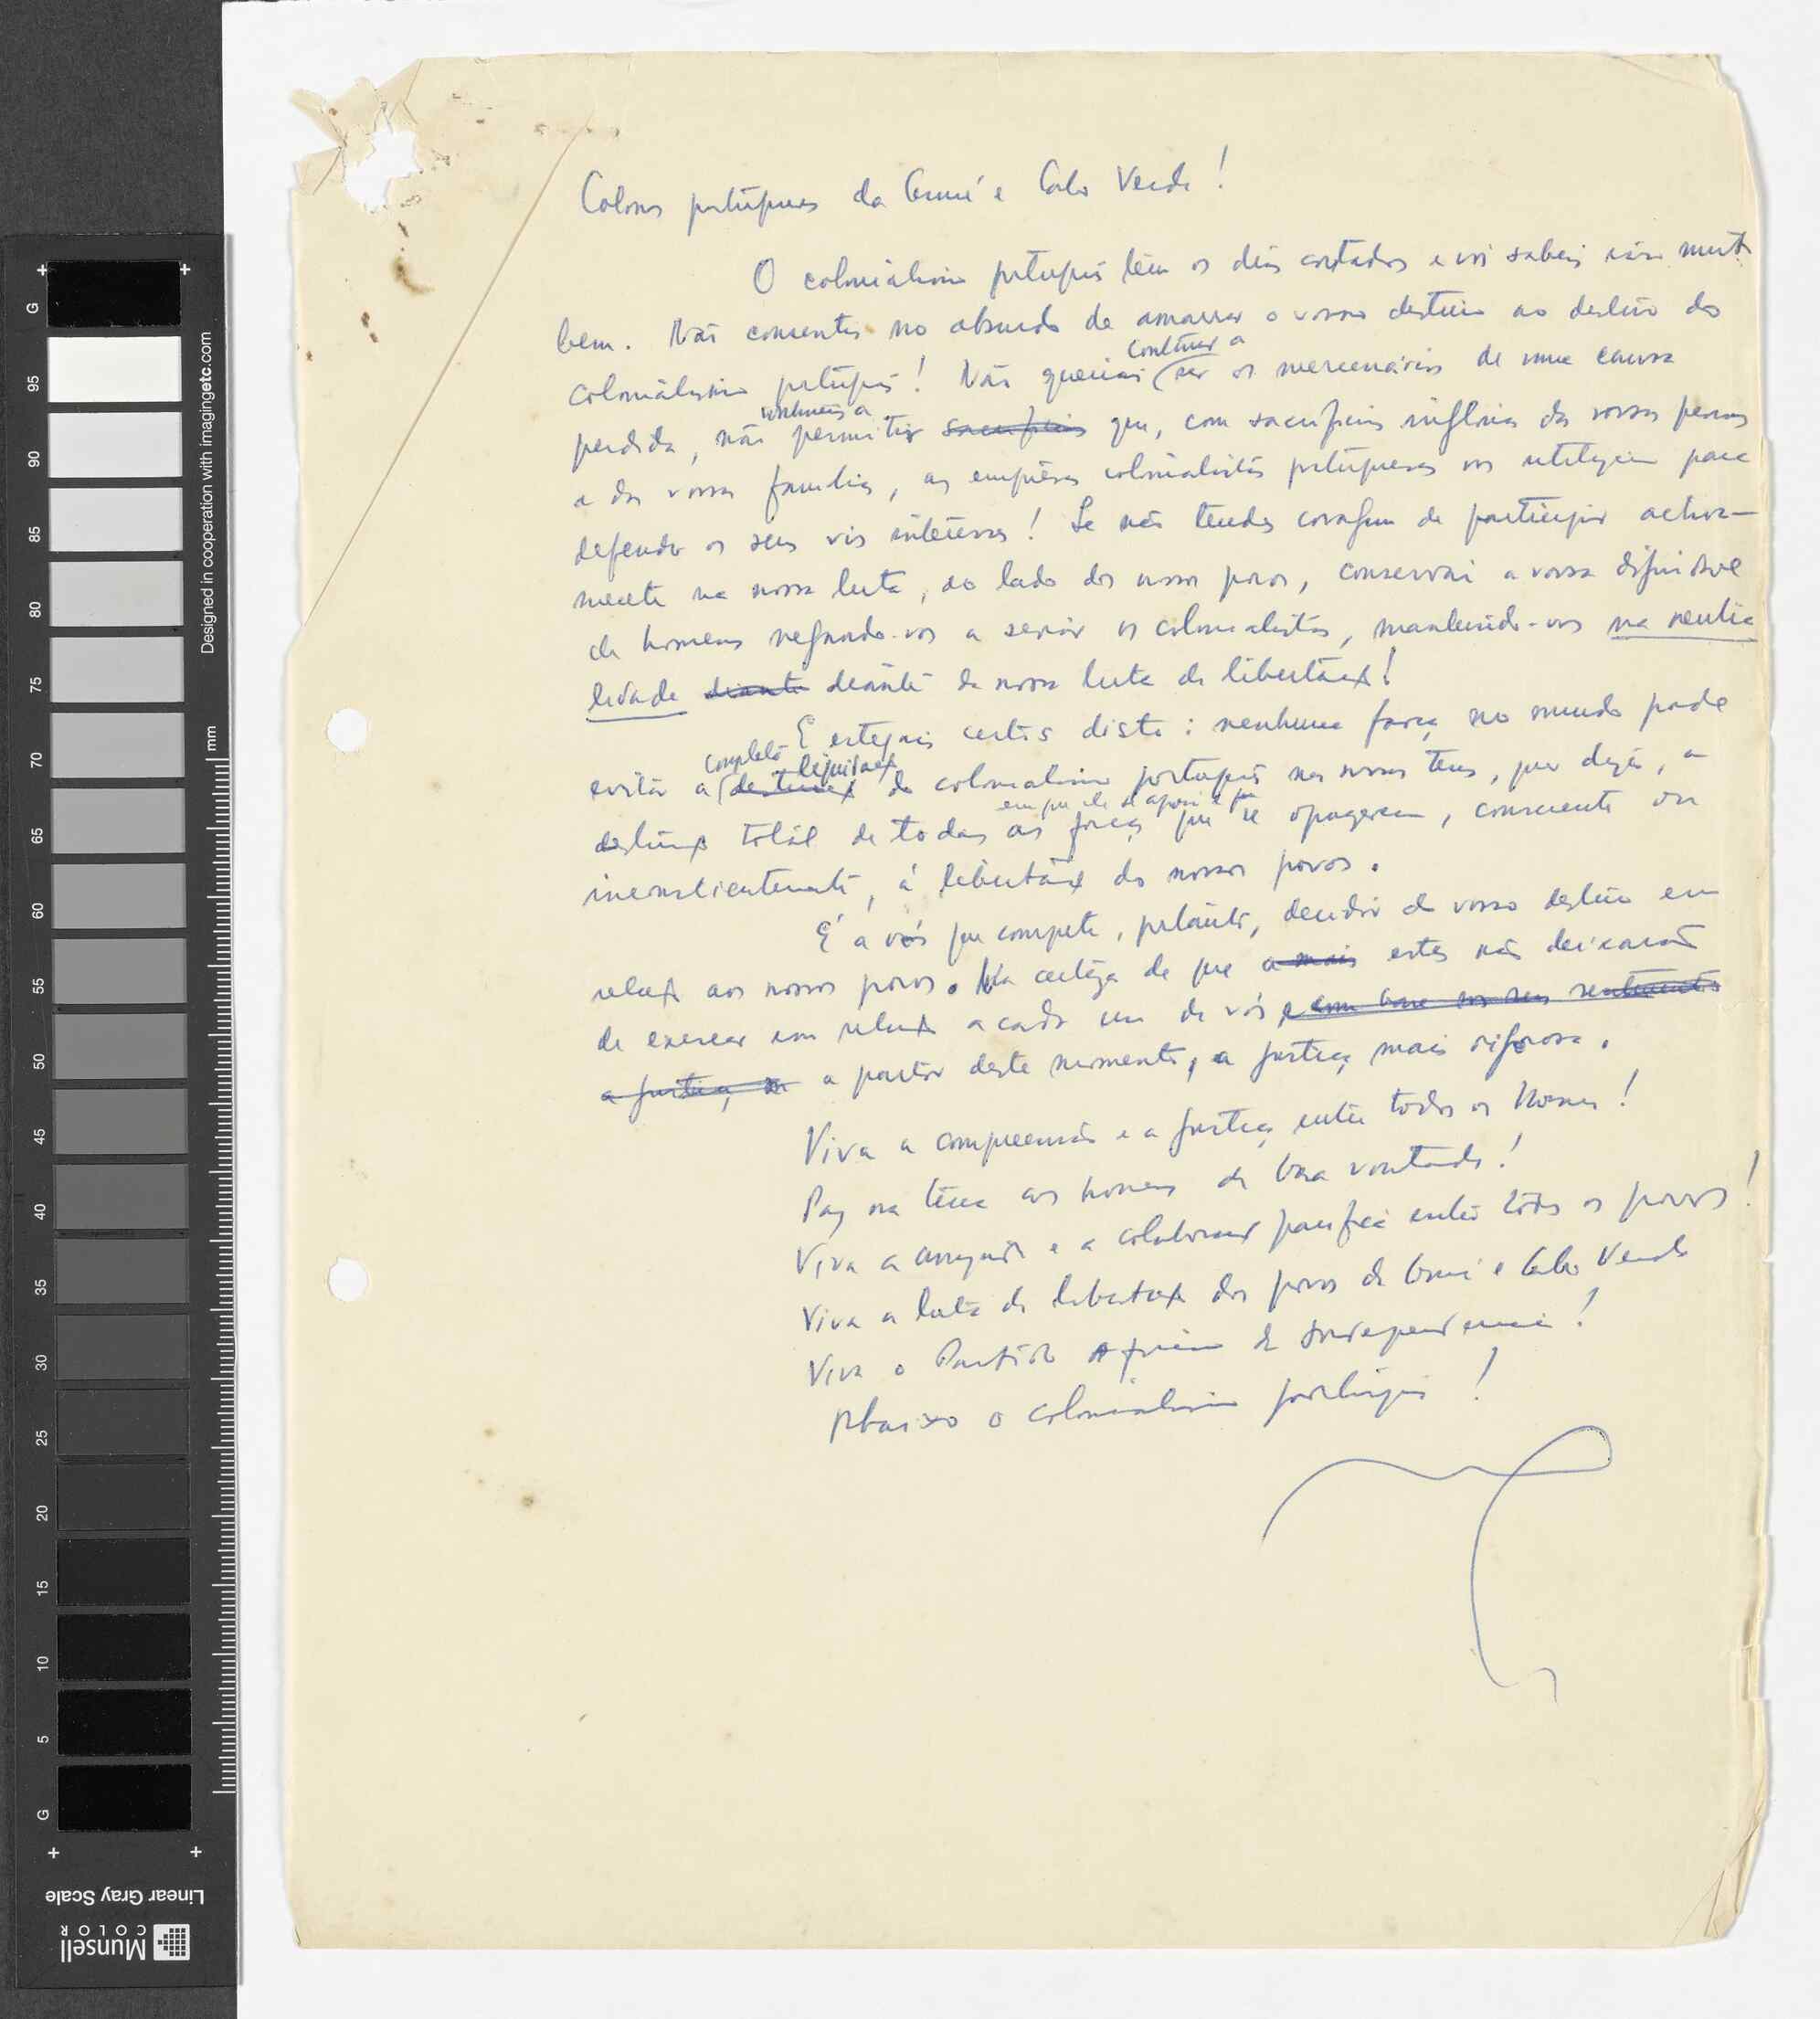 Colonos portugueses da Guiné e Cabo Verde!
O colonialismo português tem os dias contados e vós sabeis isso muito
bem. Não consentis no absurdo de amarrar o vosso destino ao destino do
continuar a
colonialismo português! Não queirais ser os mercenários de uma causa
continueis a
perdida, não permitir sacrifícios que, com sacrifícios inglórios das vossas pessoas
e das vossas famílias, as empresas colonialistas portuguesas vos utilizem para
defender os seus vis interesses! Se não tendes coragem de participar activa-
mente na nossa luta, ao lado dos nossos povos, conservai a vossa dignidade
de homens negando-vos a servir os colonialistas, mantendo-vos na neutra
lidade diante deante da nossa luta de libertação!
E estejais certos disto: nenhuma força no mundo pode
completa liquidação
evitar a destruição do colonialismo português nas nossas terras, quer dizer, a
em que ele se apoia e
destruição total de todas as forças que se opuserem, consciente ou
inconscientemente, à libertação dos nossos povos.
É a vós que compete, portanto, decidir do vosso destino em
relação aos nossos povos. Na certeza de que a mais estes não deixarão
de exercer em relação a cada um de vós, e com base nos seus sentimentos
a justiça, a partir deste momento, a justiça mais rigorosa.
Viva a compreensão e a justiça entre todos os Homens!
Paz na terra aos homens de boa vontade!
Viva a amizade e a colaboração pacífica entre todos os povos!
Viva a luta de libertação dos povos da Guiné e Cabo Verde
Viva o Partido Africano da Independência!
Abaixo o colonialismo português!
Designed in cooperation with imagingetc.com
mm
G
95
90
85
80
75
70
65
60
55
50
45
40
35
30
25
20
15
10
5
G
Linear Gray Scale
Munsell
COLOR